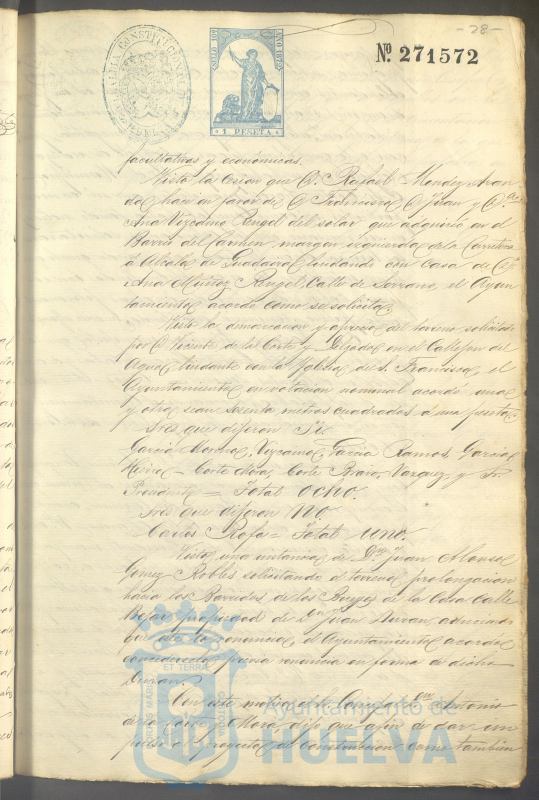 -28-
ALCALDIA CONSTITUCIONAL
SELLO 10º AÑO 1875
Nº 271572
1 PESETA
facultativas y económicas.
Visto la cesion que D. Rafael Mendez Aran
da hace en favor de D. Francisco, D. Juan y Dª
Ana Vizcaino Rengel del solar que adquirió en el
Barrio del Carmen, margen izquierda de la Carretera
á Alcalá de Guadaira lindando con Casa de Dª
Ana Muñoz Rengel, Calle de Serrano, el Ayun
tamiento acordó como se solicita.
Visto la demarcacion y aprecio del terreno solicitado
por D. Vicente de la Corte y en el Callejon del
Agua, lindante con la Yglesia de S. Francisco, el
Ayuntamiento en votacion nominal acordó
y otro sean sesenta metros cuadrados á una peseta.
Sres que dijeron Si.
Garcia Morena, Vizcaino, Garcia Ramos, Garcia
Corte Mora, Corte Bravo, Vazquez y Sr.
Presidente = Total Ocho.
Sres que dijeron No.
Carlos Rofa = Total Uno.
Visto una instancia de Dn Juan Alonso
Gomez Robles solicitando el terreno prolongacion
hacia las de los de la Casa Calle
propiedad de Dn Juan Duran, aduciendo
que este lo renuncia, el Ayuntamiento acordó
concederselo, previa renuncia en forma de dicho
Duran.
Con este motivo el Concejal Dn Antonio
de la Corte y Mora, dijo que á fin de dar im
pulso al proyecto de construccion como tambien
ET TERRA
PORTUS MARIS
CUSTODIA
Ayuntamiento de
HUELVA